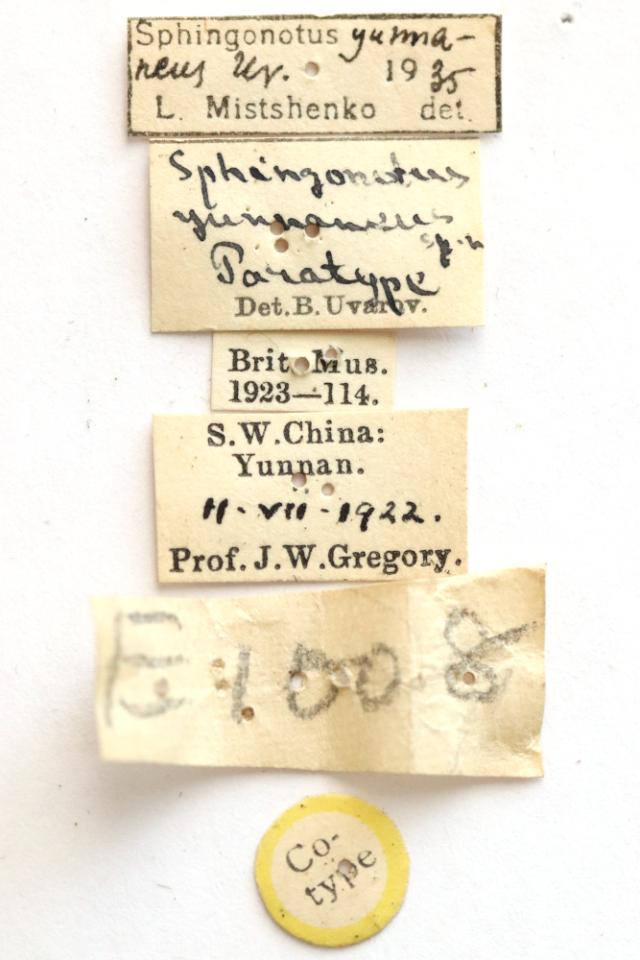 Sphingonotus yunna-
neus Uv. 1935
L. Mistshenko det.
Sphingonotus
yunnaneus
sp. n
Paratype
Det. B. Uvarov.
Brit. Mus.
1923—114.
S.W. China:
Yunnan.
11·VII·1922.
Prof. J.W. Gregory.
E 1008
Co-
type